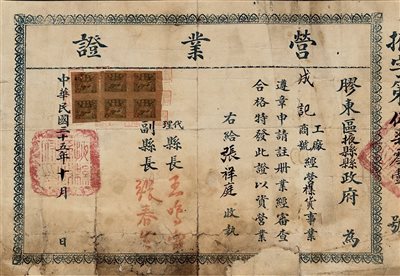 證業營
膠東區掖縣縣政府 為
成記 工廠 商號 經營 雜貨事業
遵章申請註冊業經審查
合格特發此證以資營業
右給 張祥庭 收執
代理 縣長 王
副縣長 張
中華民國三十五年十月 日